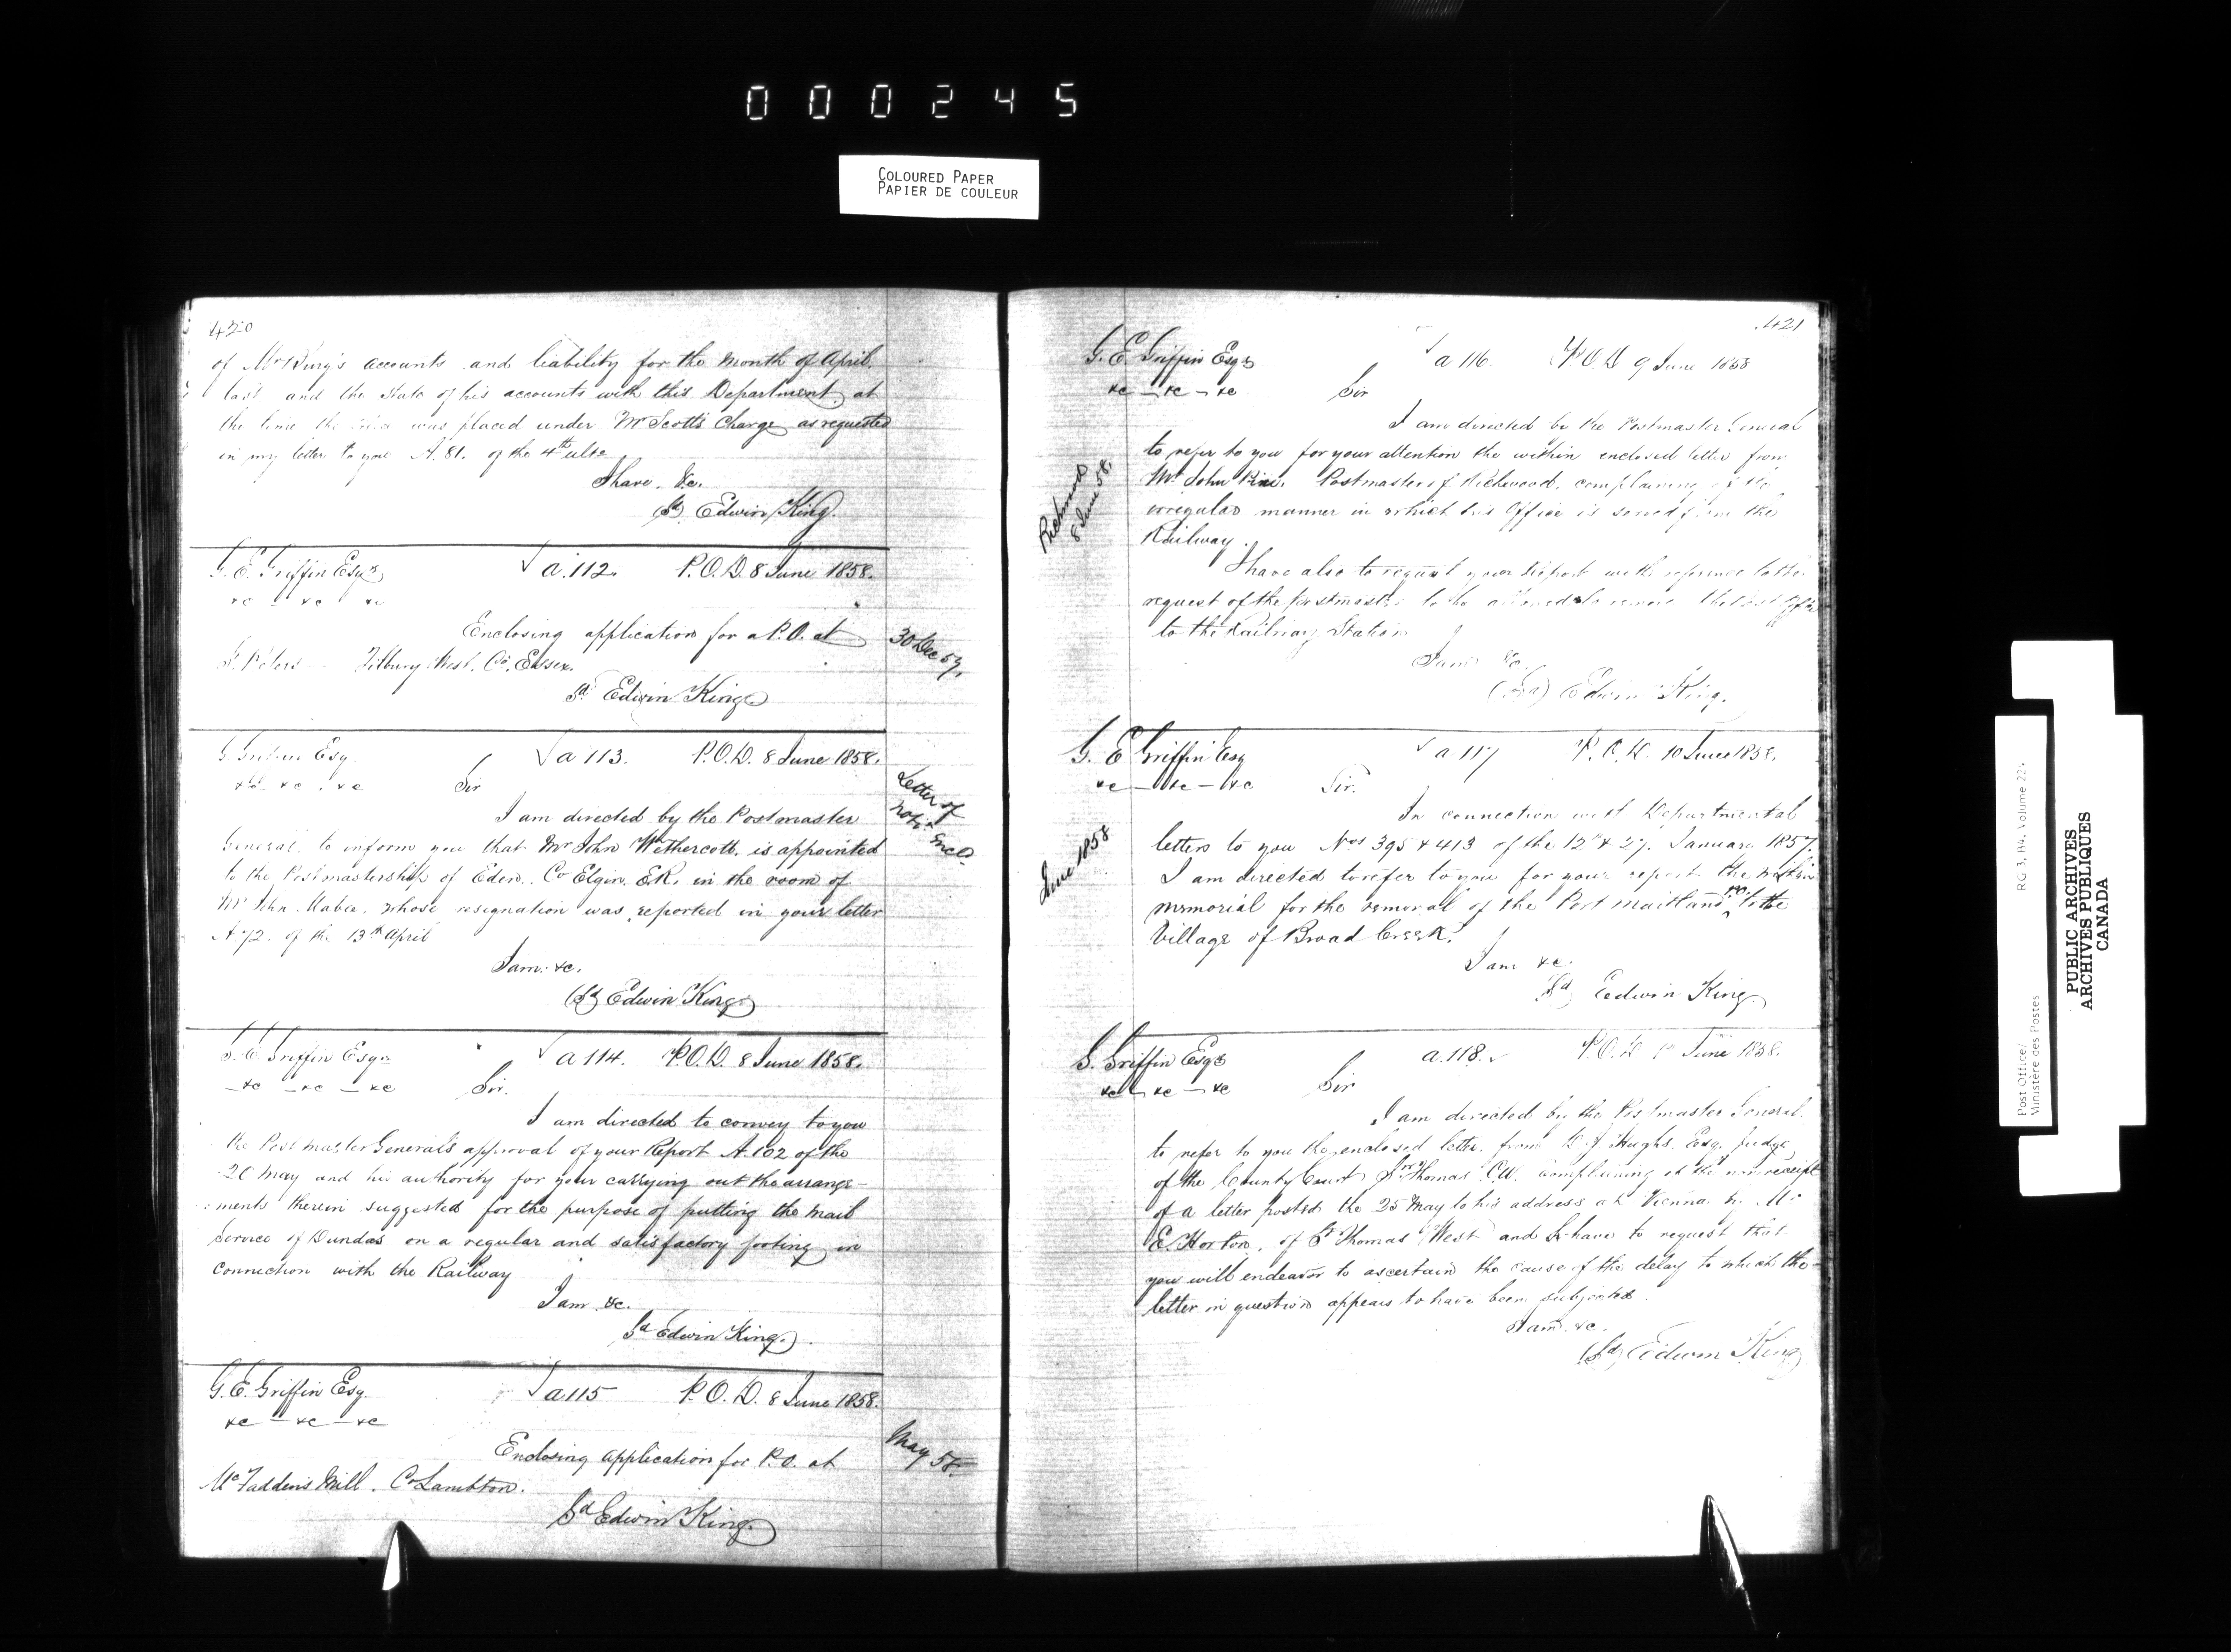 000245
COLOURED PAPER
PAPIER DE COULEUR
420
of Mr King's accounts and liability for the month of April
last and the state of his accounts with this Department at
the time the was placed under Mr Scott's Charge as requested
in my letter to you A. 81. of the 4th ulto
I have &c.
(Sd) Edwin King.
G. E. Griffin Esqr
√ a.112. P.O.D. 8 June 1858.
&c — &c &c
Enclosing application for a P.O. at
30 Dec 57.
St. Peters Tilbury West, Co. Essex.
Sd Edwin King
G Griffin Esq
√ a 113. P.O.D. 8 June 1858.
&c — &c . &c
Sir
Letter of
Enclo
I am directed by the Postmaster
General to inform you that Mr John Wethercott. is appointed
to the Postmastership of Eden. Co Elgin. E.R. in the room of
Mr John Mabee. whose resignation was reported in your letter
A 72. of the 13th April
I am. &c.
(Sd) Edwin King
G. E Griffin Esqr
√ a 114. P.O.D. 8 June 1858.
— &c — &c — &c
Sir.
I am directed to convey to you
the Post master General's approval of your Report A. 102 of the
20 May and his authority for your carrying out the arrange-
ments therein suggested for the purpose of putting the mail
Service of Dundas on a regular and satisfactory footing in
connection with the Railway
I am &c.
Sd Edwin King.
G. E. Griffin Esq.
√ a 115 P.O.D. 8 June 1858.
&c — &c — &c
Enclosing application for P.O. at
May 58.
McFaddens Mill. Co Lambton.
Sd Edwin King
421
G. E. Griffin Esqr
√ a 116. P.O.D 9 June 1858
&c — &c — &c
Sir
I am directed by the Postmaster General
to refer to you for your attention the within enclosed letter from
Mr John Postmaster of Richwood. complaining of the
irregular manner in which his Office is served from the
Railway.
8 June 58.
I have also to request your Report with reference to the
request of the postmaster to be allowed to remove the Post Office
to the Railway Station
I am &c.
(Sd) Edwin King.
G. E Griffin Esq
√ a 117 P.O.D. 10 June 1858.
&c — &c — &c
Sir.
In connection with Departmental
letters to you Nos 395 & 413 of the 12th & 27. January 1857.
I am directed to refer to you for your report the within
June 1858
memorial for the removal of the Port Maitland P.O. to the
Village of Broad Creek.
I am &c.
Sd) Edwin King.
G. Griffin Esqr
a.118. √ P.O.D June 1858.
&c — &c — &c
Sir
I am directed by the Postmaster General.
to refer to you the enclosed letter. from D. J. Hughs. Esq. Judge
of the County Court St. Thomas C.W. complaining of the non receipt
of a letter posted the 25 May to his address at Vienna by Mr
E. Horton. of St Thomas West and I have to request that
you will endeavor to ascertain the cause of the delay to which the
letter in question appears to have been subjected.
I am &c.
(Sd) Edwin King
Post Office/
Ministère des Postes
RG 3, B4, Volume 224
PUBLIC ARCHIVES
ARCHIVES PUBLIQUES
CANADA